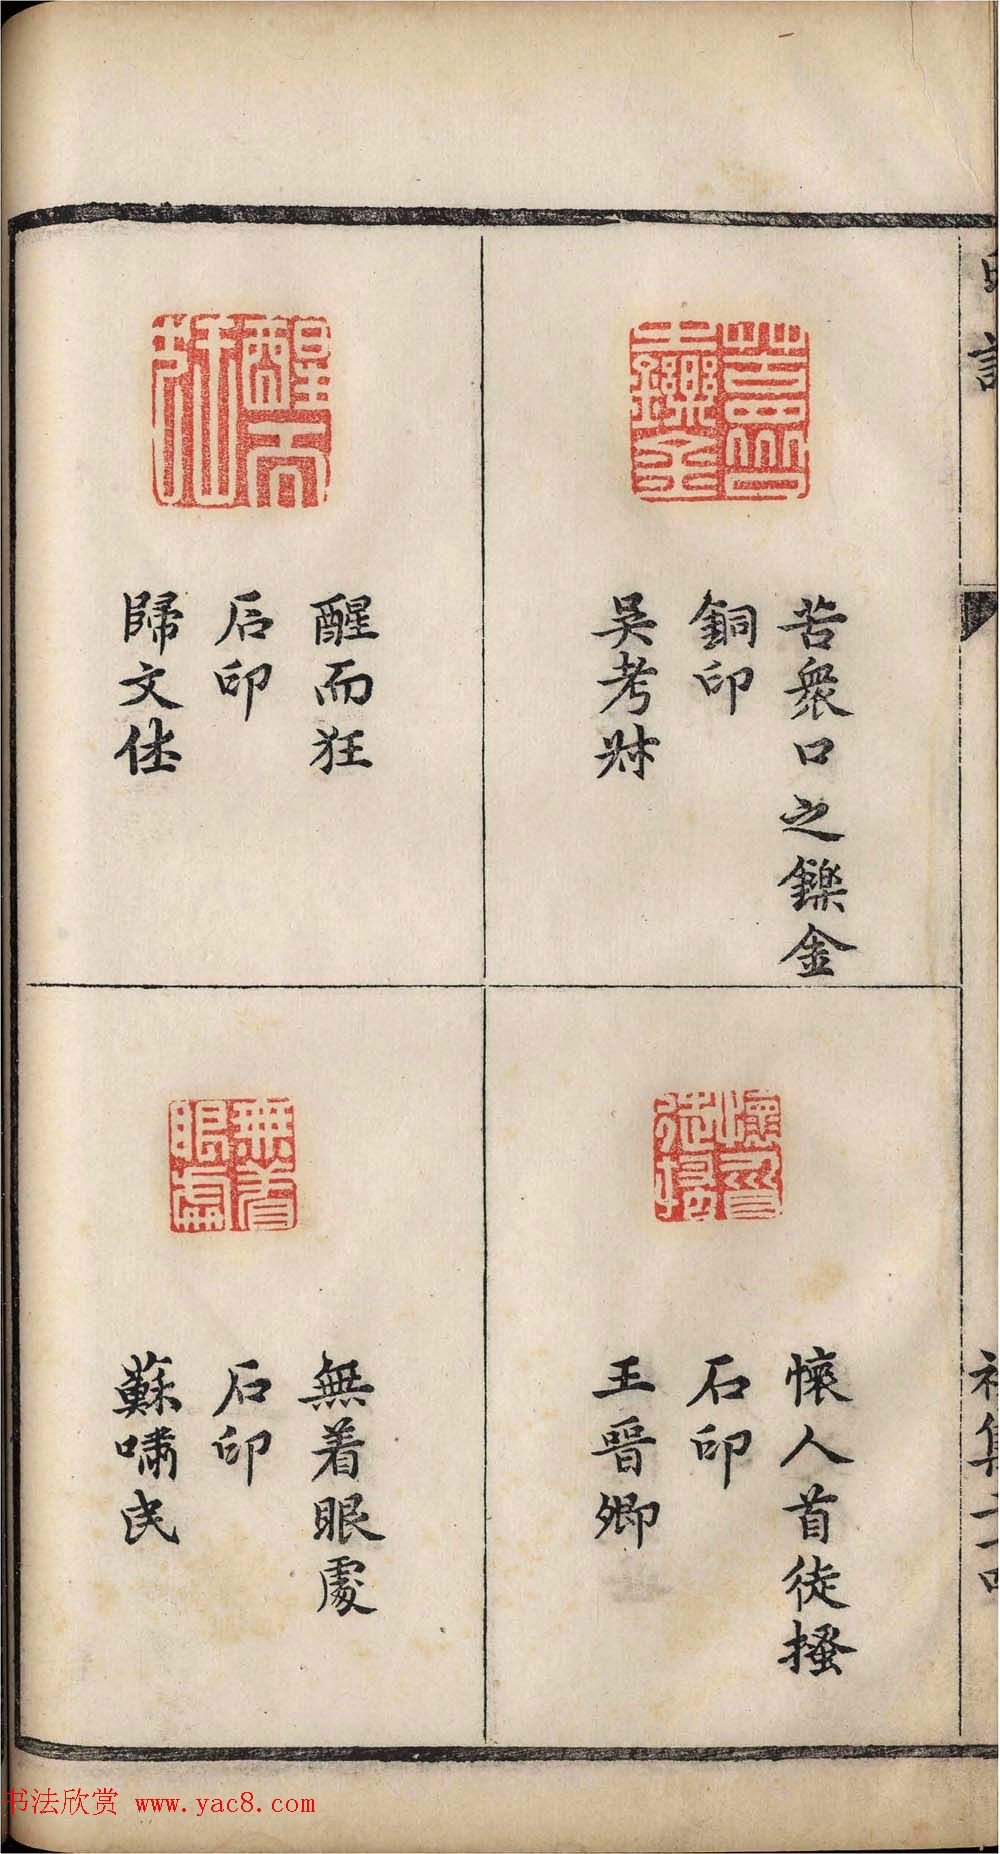 苦衆口之鑠金
銅印
吴考𡬶
醒而狂
石印
歸文休
懷人首徒搔
石印
王晉卿
無着眼處
石印
蘇嘯民
书法欣赏 www.yac8.com